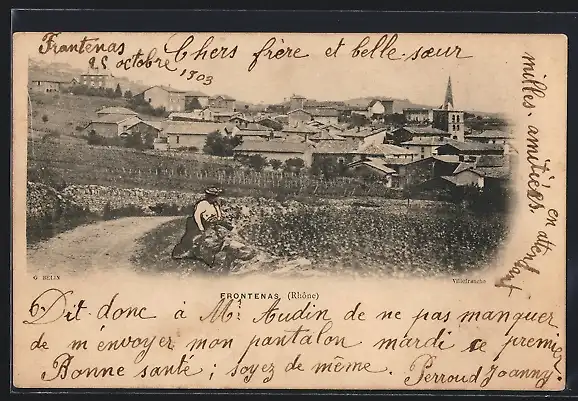 Frontenas
25 octobre 1903
Chers frère et belle-sœur
milles amitiés,
en attendant
G BELIN
Villefranche
FRONTENAS (Rhône)
Dit donc à Mr Audin de ne pas manquer
de m'envoyer mon pantalon mardi ce premier.
Bonne santé ; soyez de même. Perroud Joanny.